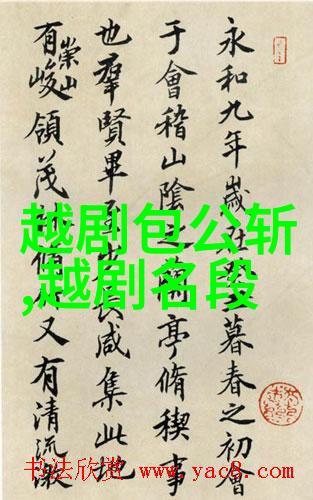 永和九年歲在暮春之初會
于會稽山陰之蘭亭脩稧事
也羣賢畢至少長咸集此地
有崇山峻領茂林脩竹又有清流激
越剧包公斩
,越剧名段
书法欣赏 www.yac8.com